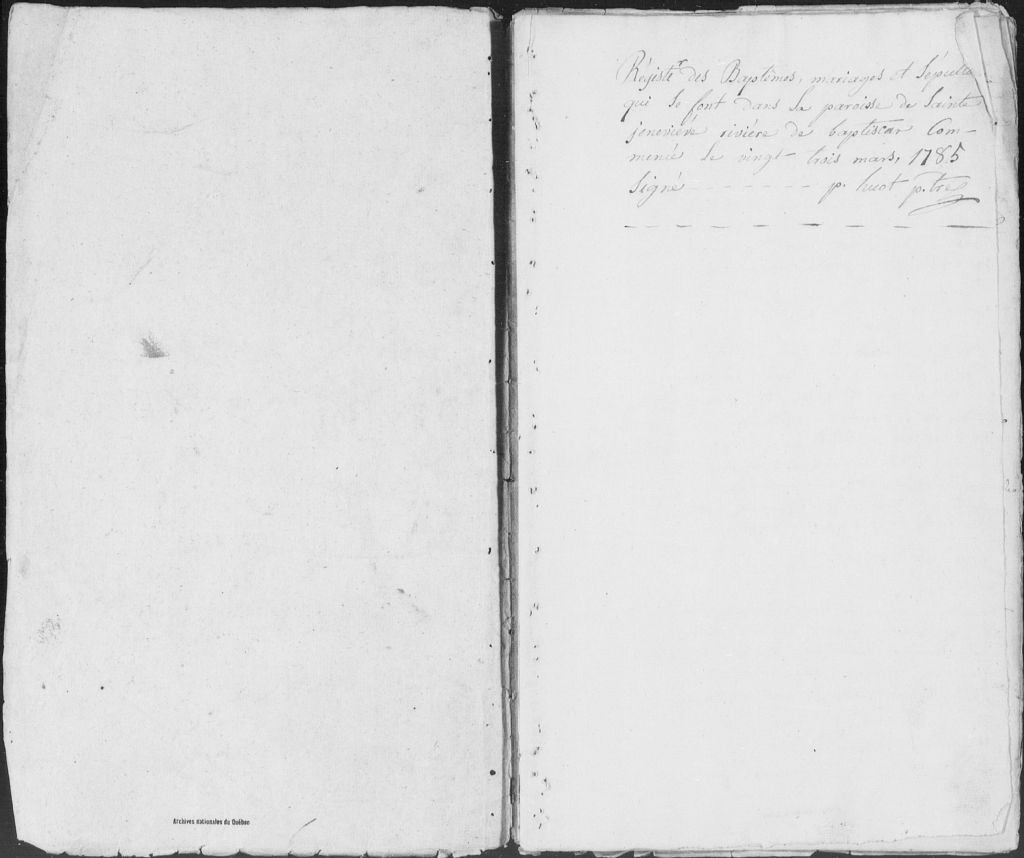 Archives nationales du Québec
Régistr des Baptêmes, mariages et Sépultu
qui se font dans la paroisse de Sainte
jeneviéve riviére de baptiscan Com-
mencé le vingt-trois mars, 1785
Signé - - - - - - - p. huot p.tre